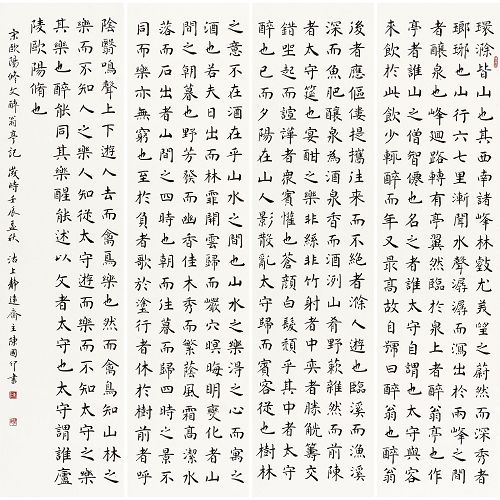 環滁皆山也其西南諸峰林壑尤美望之蔚然而深秀者
瑯琊也山行六七里漸聞水聲潺潺而瀉出於兩峰之間
者釀泉也峰迴路轉有亭翼然臨於泉上者醉翁亭也作
亭者誰山之僧智僊也名之者誰太守自謂也太守與客
來飲於此飲少輒醉而年又最高故自號曰醉翁也醉翁
後者應傴僂提攜往來而不絕者滁人遊也臨溪而漁溪
深而魚肥釀泉為酒泉香而酒洌山肴野蔌雜然而前陳
者太守筵也宴酣之樂非絲非竹射者中奕者勝觥籌交
錯坐起而諠譁者眾賓懽也蒼顏白髮頹乎其中者太守
醉也已而夕陽在山人影散亂太守歸而賓客從也樹林
之意不在酒在乎山水之間也山水之樂得之心而寓之
酒也若夫日出而林霏開雲歸而巖穴暝晦明變化者山
間之朝暮也野芳發而幽香佳木秀而繁蔭風霜高潔水
落而石出者山間之四時也朝而往暮而歸四時之景不
同而樂亦無窮也至於負者歌於塗行者休於樹前者呼
陰翳鳴聲上下遊人去而禽鳥樂也然而禽鳥知山林之
樂而不知人之樂人知從太守遊而樂而不知太守之樂
其樂也醉能同其樂醒能述以文者太守也太守謂誰廬
陵歐陽脩也
宋歐陽修文醉翁亭記歲時壬辰孟秋沽上靜逸齋主陳國印書